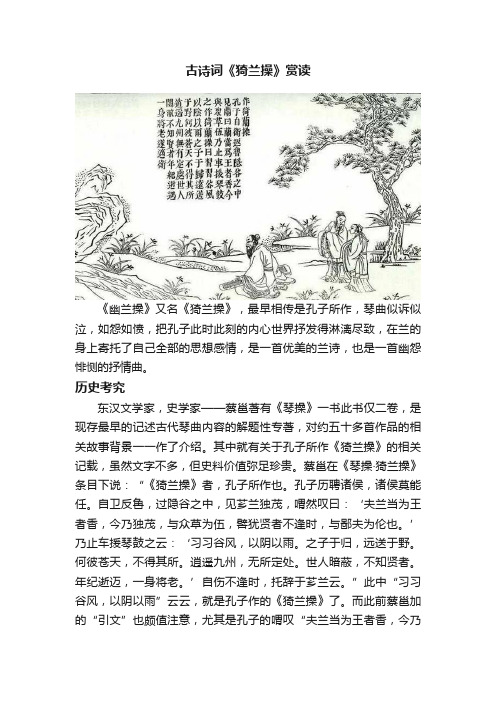 古诗词《猗兰操》赏读
作猗蘭操
孔子自衛返魯隱谷之中
見蘭曰蘭當爲王者香今
與衆草伍乃止車援琴鼓
之作猗蘭操曰習習谷風
以陰以雨之子于歸遠送
于野何彼蒼天不得其所
逍遙九州無有定處世人
闇蔽不知賢者年紀逝邁
一身將老遂適衛
《幽兰操》又名《猗兰操》，最早相传是孔子所作，琴曲似诉似
泣，如怨如愤，把孔子此时此刻的内心世界抒发得淋漓尽致，在兰的
身上寄托了自己全部的思想感情，是一首优美的兰诗，也是一首幽怨
悱恻的抒情曲。
历史考究
东汉文学家，史学家——蔡邕著有《琴操》一书此书仅二卷，是
现存最早的记述古代琴曲内容的解题性专著，对约五十多首作品的相
关故事背景一一作了介绍。其中就有关于孔子所作《猗兰操》的相关
记载，虽然文字不多，但史料价值弥足珍贵。蔡邕在《琴操·猗兰操》
条目下说：“《猗兰操》者，孔子所作也。孔子历聘诸侯，诸侯莫能
任。自卫反鲁，过隐谷之中，见芗兰独茂，喟然叹日：‘夫兰当为王
者香，今乃独茂，与众草为伍，譬犹贤者不逢时，与鄙夫为伦也。’
乃止车援琴鼓之云：‘习习谷风，以阴以雨。之子于归，远送于野。
何彼苍天，不得其所。逍遥九州，无所定处。世人暗蔽，不知贤者。
年纪逝迈，一身将老。’自伤不逢时，托辞于芗兰云。”此中“习习
谷风，以阴以雨”云云，就是孔子作的《猗兰操》了。而此前蔡邕加
的“引文”也颇值注意，尤其是孔子的喟叹“夫兰当为王者香，今乃